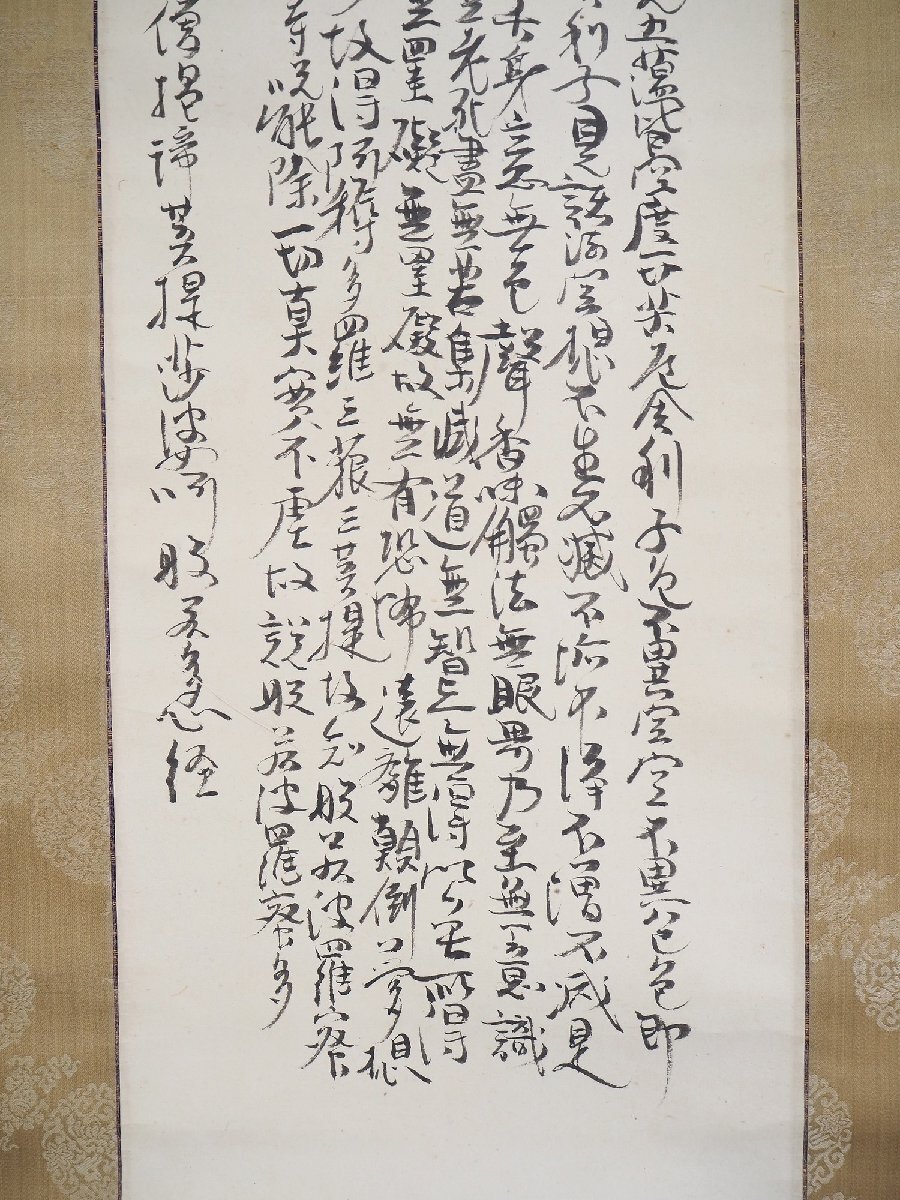 五蘊皆空度一切苦厄舍利子色不異空空不異色色即
利子是諸法空想不生不滅不垢不淨不增不減是
舌身意無色聲香味觸法無眼界乃至無意識
至無老死盡無苦集滅道無智亦無得以無所得
無罣礙無罣礙故無有恐怖遠離顛倒夢想
故得阿耨多羅三藐三菩提故知般若波羅蜜
等咒能除一切真實不虛故說般若波羅蜜多
僧揭諦菩提莎婆訶 般若多心經